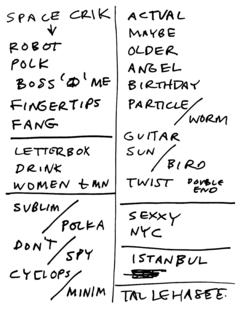 SPACE CRIK
ROBOT
POLK
BOSS 'O' ME
FINGERTIPS
FANG
LETTERBOX
DRINK
WOMEN & MN
SUBLIM/
POLKA
DON'T/
SPY
CYCLOPS/
MINIM
ACTUAL
MAYBE
OLDER
ANGEL
BIRTHDAY
PARTICLE/
WORM
GUITAR
SUN/
BIRD
TWIST DOUBLE
END
SEXXY
NYC
ISTANBUL
TALLEHASEE